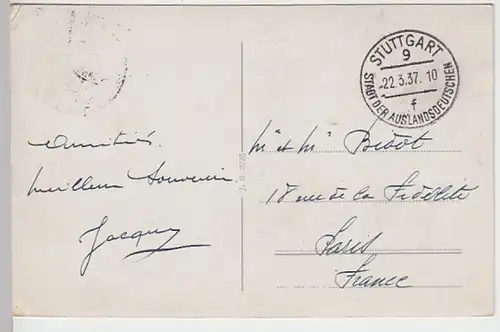 STUTTGART
9
-22.3.37.10
f
STADT DER AUSLANDSDEUTSCHEN
Amitiés.
meilleur souvenir
Jacquy
Mr et Mme Bidot
18 rue de la Fidélité
Paris
France